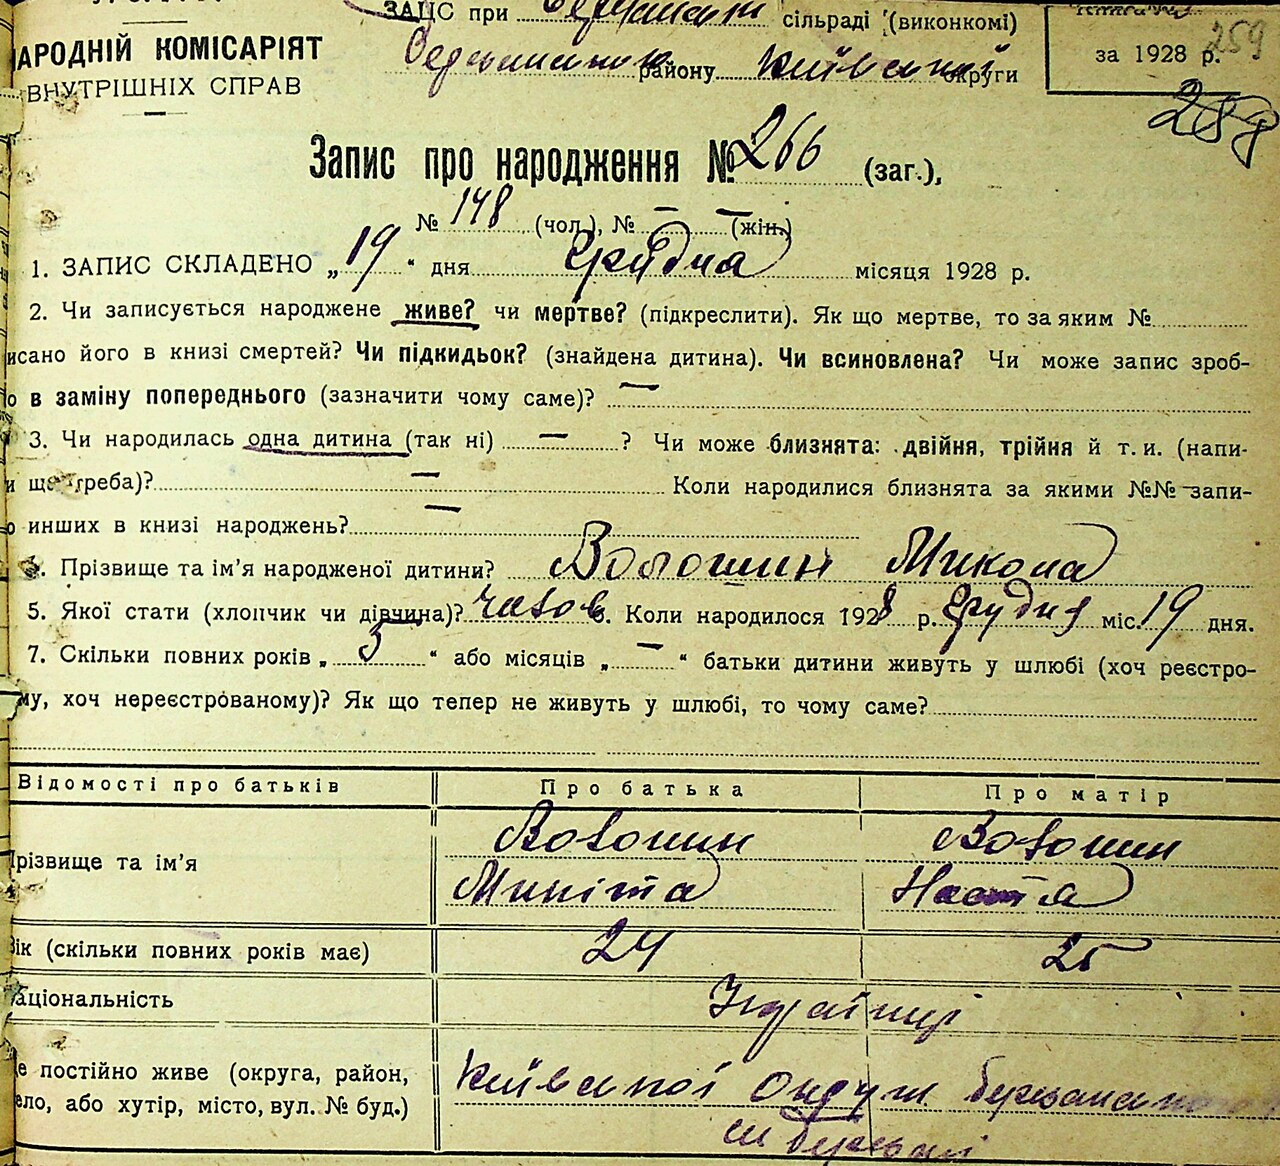 НАРОДНІЙ КОМІСАРІЯТ
ВНУТРІШНІХ СПРАВ
ЗАЦС при сільраді (виконкомі)
району Київської округи
за 1928 р.
259
259
Запис про народження № 266 (заг.),
№ 148 (чол.), № — — (жін.)
1. ЗАПИС СКЛАДЕНО „ 19 “ дня Грудня місяця 1928 р.
2. Чи записується народжене живе? чи мертве? (підкреслити). Як що мертве, то за яким №
исано його в книзі смертей? Чи підкидьок? (знайдена дитина). Чи всиновлена? Чи може запис зроб-
о в заміну попереднього (зазначити чому саме)? —
3. Чи народилась одна дитина (так ні) — ? Чи може близнята: двійня, трійня й т. и. (напи-
и ще треба)? — Коли народилися близнята за якими №№ запи-
о инших в книзі народжень? —
4. Прізвище та ім’я народженої дитини? Волошин Микола
5. Якої стати (хлопчик чи дівчина)? чолов 6. Коли народилося 1928 р. Грудня міс. 19 дня.
7. Скільки повних років „ 5 “ або місяців „ — “ батьки дитини живуть у шлюбі (хоч реєстро-
му, хоч нереєстрованому)? Як що тепер не живуть у шлюбі, то чому саме?
Відомості про батьків
Про батька
Про матір
Прізвище та ім’я
Волошин
Микіта
Волошин
Настя
Вік (скільки повних років має)
24
25
аціональність
Українці
е постійно живе (округа, район,
ело, або хутір, місто, вул. № буд.)
Київської Округи